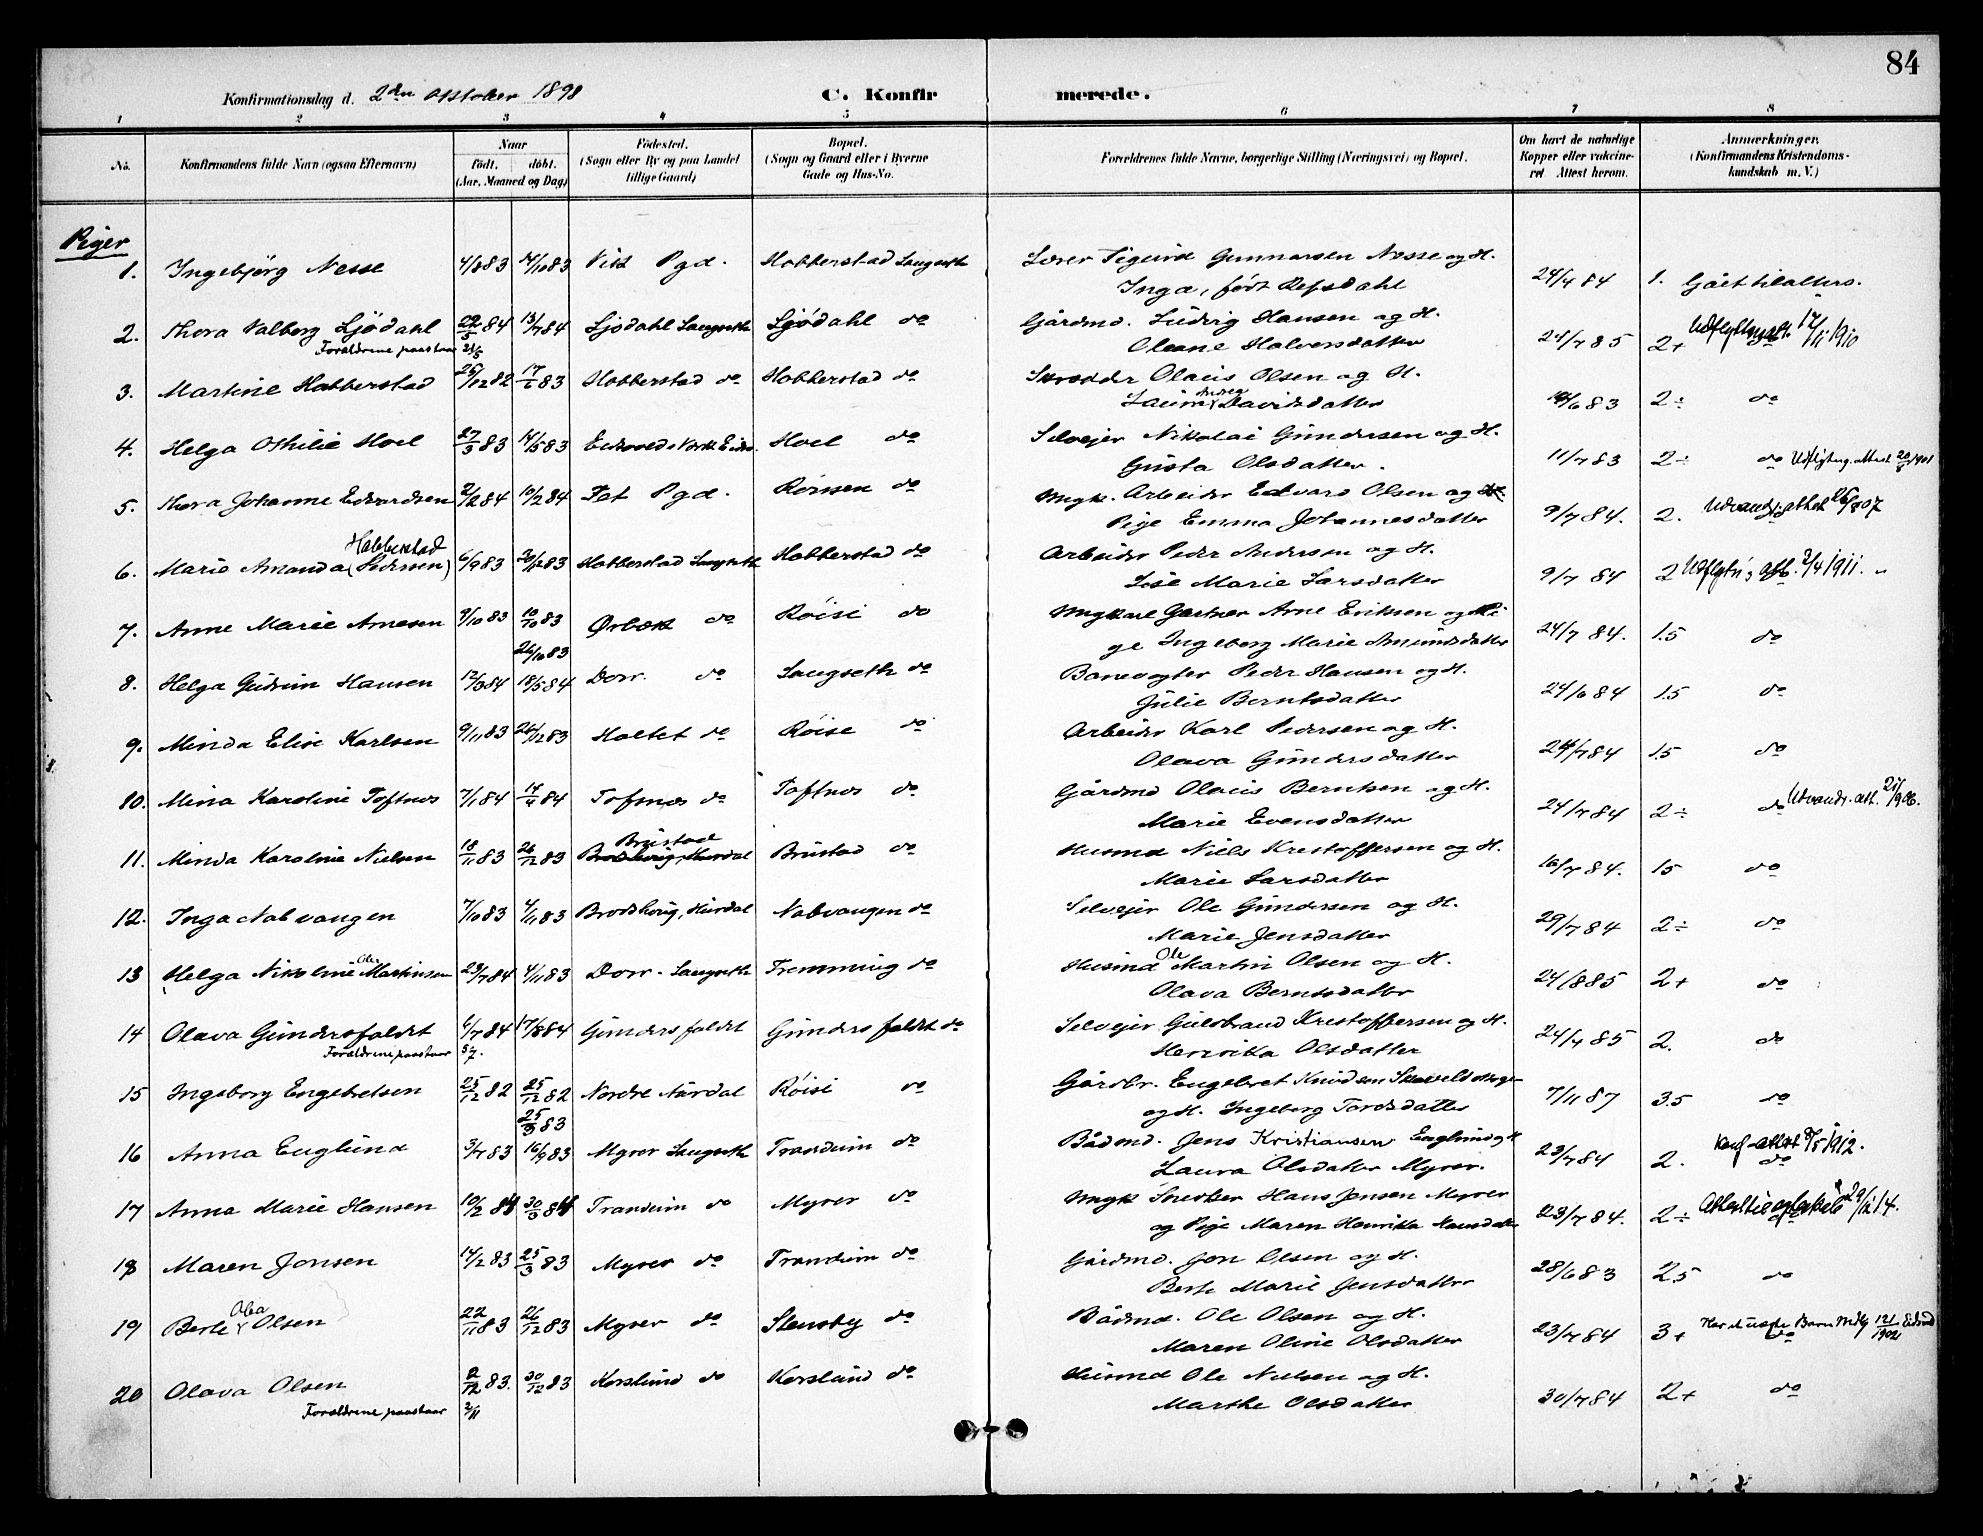 84
Konfirmationsdag d. 2den Oktober 1898 C. Konfirmerede.
1 2 3 4 5 6 7 8
No. Konfirmandens fulde Navn (ogsaa Efternavn) Naar födt. döbt. (Aar, Maaned og Dag) Födested. (Sogn eller By og paa Landet tillige Gaard) Bopæl. (Sogn og Gaard eller i Byerne Gade og Hus-No. Forældrenes fulde Navne, borgerlige Stilling (Næringsvei) og Bopæl. Om havt de naturlige Kopper eller vakcineret Attest herom. Anmærkninger. (Konfirmandens Kristendomskundskab m. V.)
Piger
1. Ingebjörg Nesse 4/8 83 14/10 83 Vik Pgd. Habberstad Langseth Lærer Sigurd Gunnarsen Nesse og H. Inga, född Refsdahl 24/4 84 1. Gået tilalters.
2. Thora Valborg Ljödahl 22/5 84 13/7 84 Ljödahl Langseth Ljödahl do Gårdmd. Ludvig Hansen og H. Oleane Halvorsdatter 24/7 85 2+ 1910
Forældrene paastaar 21/5
3. Martine Habberstad 26/12 82 17/6 83 Habberstad do Habberstad do Skrædder Olaus Olsen og H. Laura Andrea Davidsdatter 14/6 83 2÷ do
4. Helga Othilie Hoel 27/3 83 14/5 83 Eidsvold Hoel do Selvejer Nikolai Gundersen og H. Gusta Olsdatter. 11/7 83 2÷ do Udflytn. attest 20/8 1901
5. Thora Johanne Edvardsen 2/2 84 10/2 84 Fet Pgd. Röisen do Ungk. Arbeider Edvard Olsen og Pige Emma Johannesdatter 9/7 84. 2. Udvandr. attest 1907
6. Marie Amanda (Pedersen) Habberstad 6/9 83 30/12 83 Habberstad Langseth Habberstad do Arbeider Peder Andersen og H. Lise Marie Larsdatter 9/7 84 2 Udflytn. att. 3/4 1911.
7. Anne Marie Arnesen 9/10 83 10/10 83 Ørbæk do Röisi do Ungkarl Gartner Arne Eriksen og Pige Ingeborg Marie Amundsdatter 24/7 84. 1.5 do
26/10 83
8. Helga Gudrun Hansen 12/3 84 18/5 84 Dorr. do Langseth do Banevogter Peder Hansen og H. Julie Berntsdatter 24/6 84 1.5 do
9. Minda Elise Karlsen 9/11 83 26/12 83 Holtet do Röise do Arbeider Karl Pedersen og H. Olava Gundersdatter 24/7 84 1.5 do
10. Mina Karoline Toftnes 7/1 84 14/4 84 Tofnæs do Toftnes do Gårdmd Olaus Berntsen og H. Marie Evensdatter 24/7 84 2÷ do Udvandr. att. 1906.
11. Minda Karoline Nielsen 18/11 83 26/12 83 Brustad Brustad do Husmd Niels Kristoffersen og H. Marie Larsdatter 16/7 84. 15 do
12. Inga Nabvangen 7/10 83 4/11 83 Brodshoug, Hurdal Nabvangen do Selvejer Ole Gundersen og H. Marie Jensdatter 29/7 84 2÷ do
13 Helga Nikoline Ole Martinsen 23/7 84 4/11 83 Dorr. Langseth Fremming do Husmd Ole Martin Olsen og H. Olava Berntsdatter 24/8 85 2+ do
14 Olava Gundersfaldet 6/7 84 17/8 84 Gundersfaldet Gundersfaldet do Selvejer Gulbrand Kristoffersen og H. Henrika Olsdatter 24/4 85 2. do
Forældrene paastaar 5/7.
15 Ingeborg Engebretsen 25/12 82 25/12 82 Nordre Aurdal Röisi do Gårdbr. Engebret Knudsen og H. Ingeborg Tordsdatter 7/11 87 3.5 do
25/3 83
16 Anna Englund 3/7 83 16/9 83 Myrer Langseth Trandum do Bådmd. Jens Kristiansen Englund og H Laura Olsdatter Myrer. 23/7 84 2. Konf-attest 1912. do
17 Anna Marie Hansen 10/2 84 30/3 84 Trandum do Myrer do Ungk Snedker Hans Jensen Myrer og Pige Maren Henrika Hansdatter 23/7 84. 2÷ 14.
18 Maren Jonsen 14/2 83 25/3 83 Myrer do Trandum do Gårdmd. Jon Olsen og H. Berte Marie Jensdatter 28/6 83 2.5 do
19 Berte Olea Olsen 22/11 83 26/12 83 Myrer do Stensby do Bådmd. Ole Olsen og H. Maren Oline Olsdatter 23/7 84 3+ Har et uægte Barn 121/1902 do
20 Olava Olsen 2/12 83. 30/12 83 Korslund do Korslund do Husmd Ole Nielsen og H. Marthe Olsdatter 30/7 84 2+ do
Forældrene paastaar 2/11